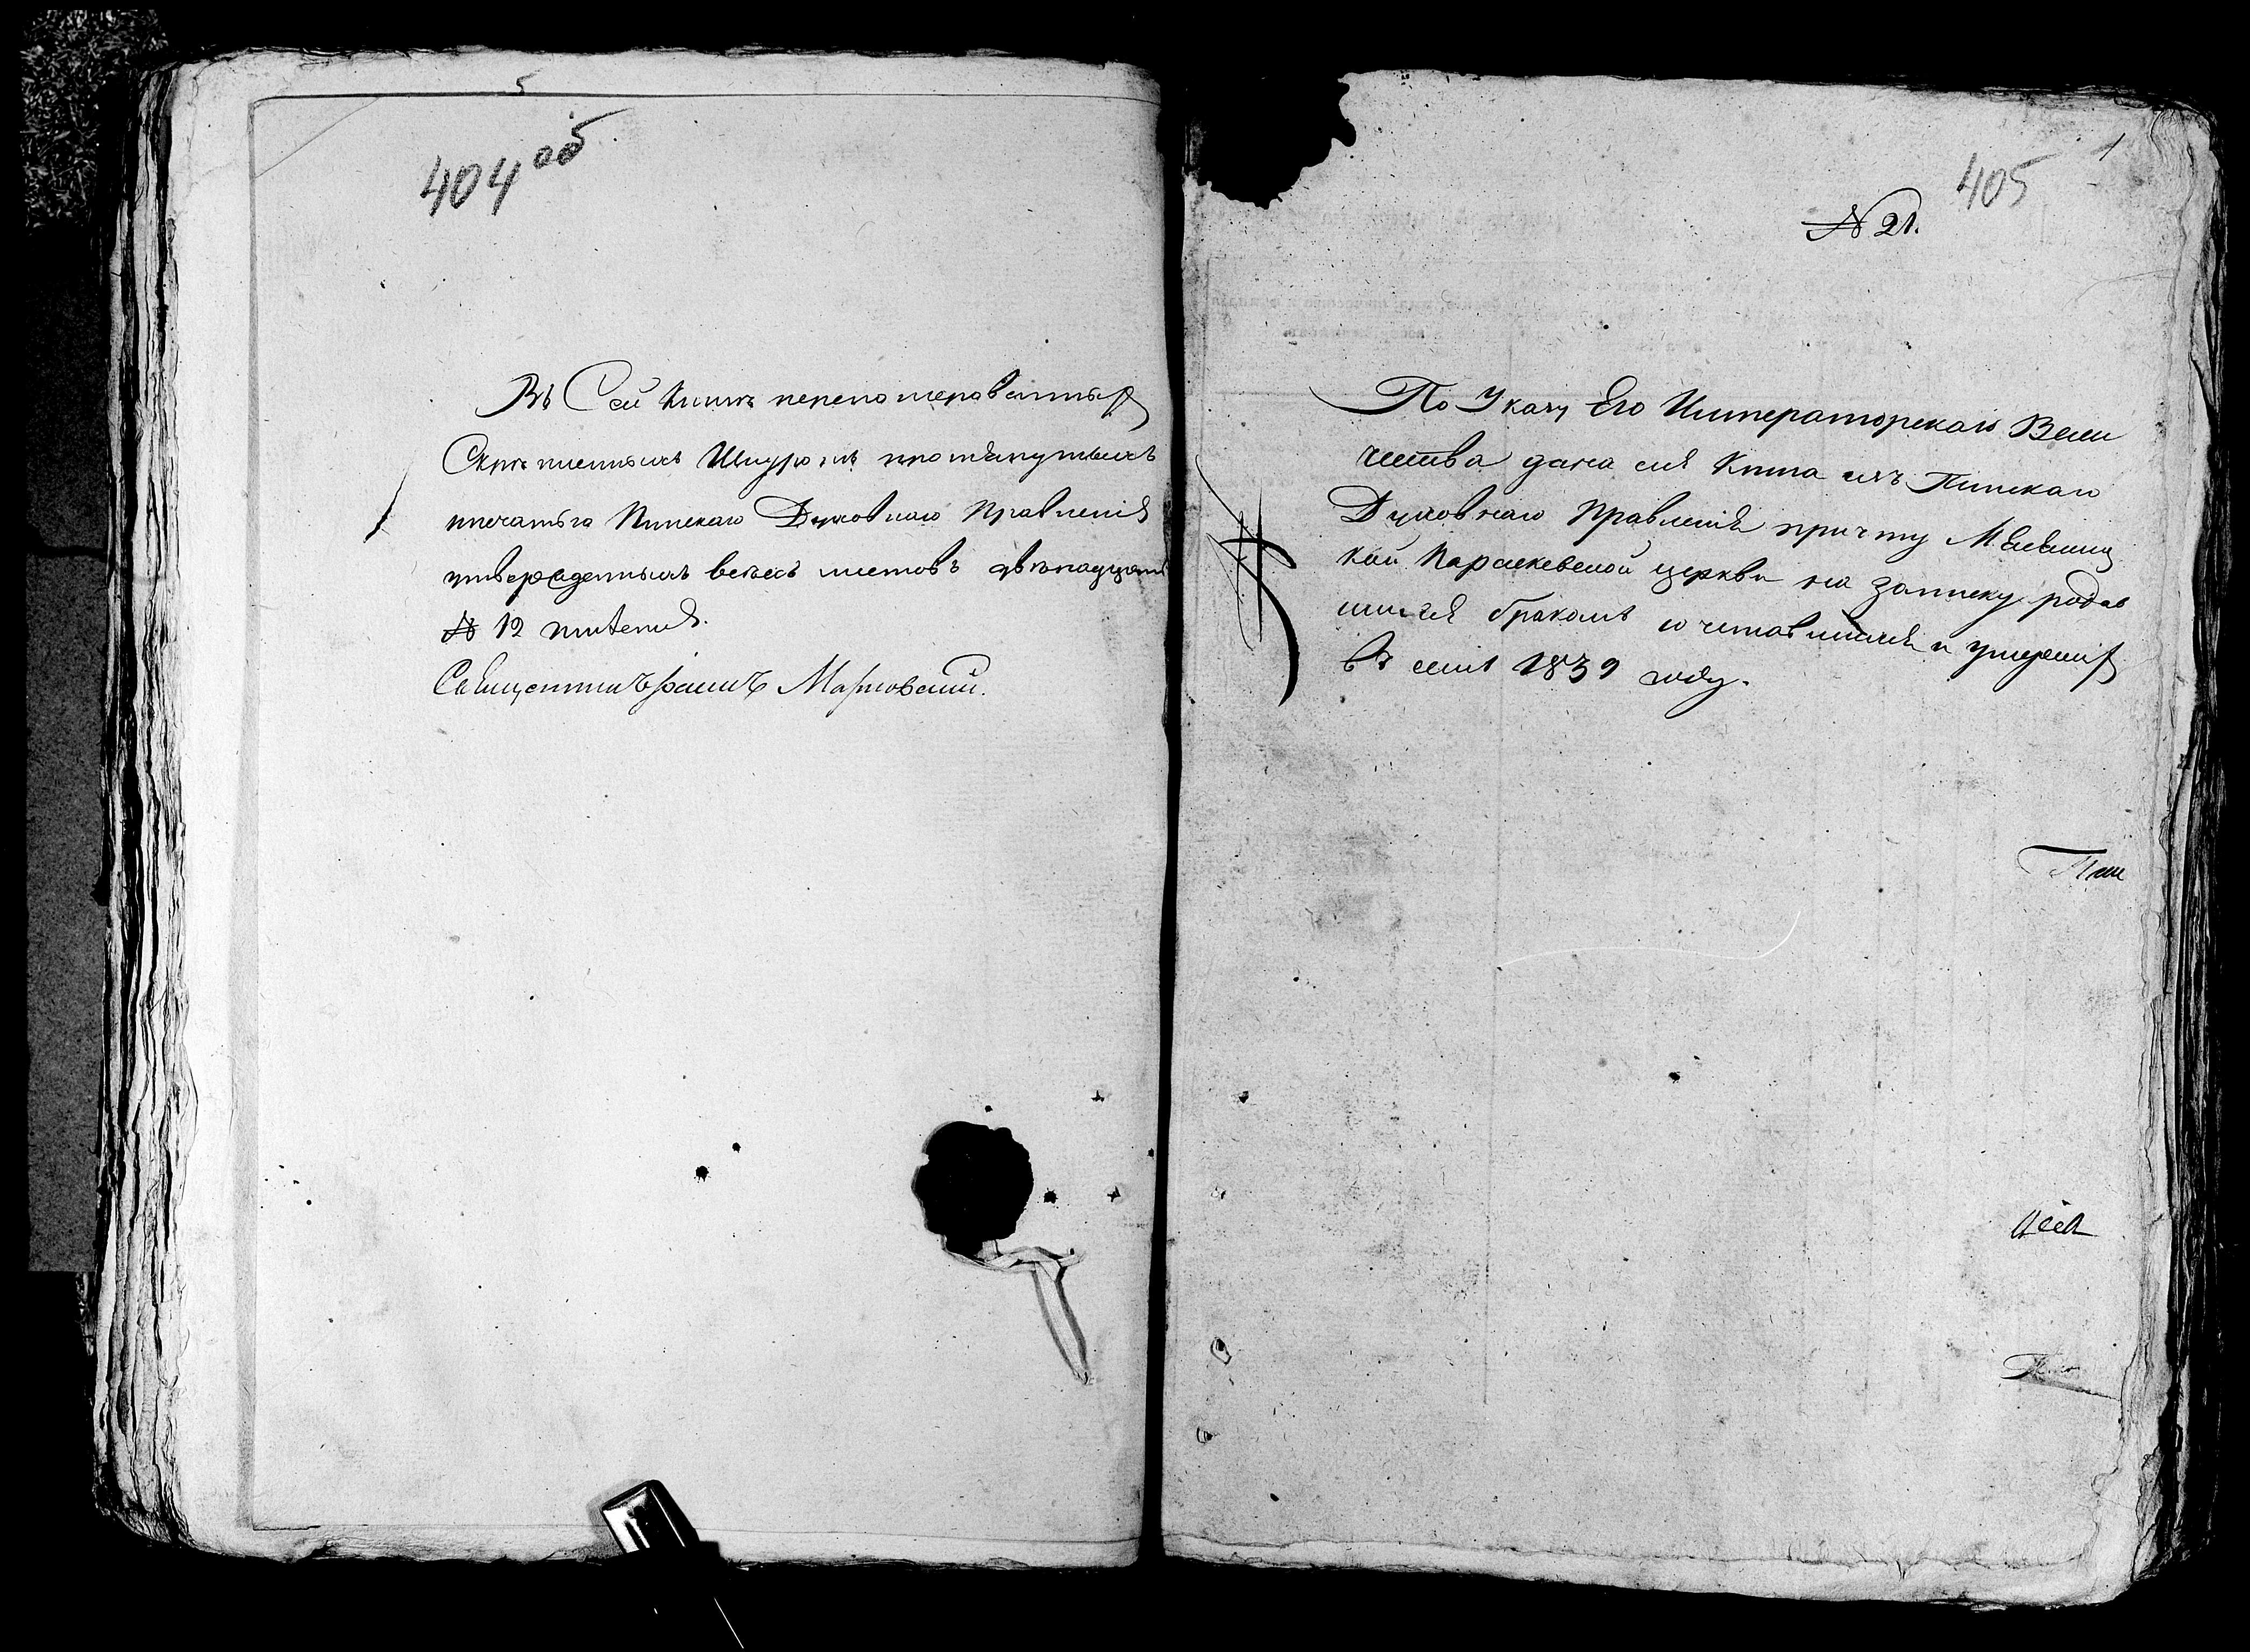 404 об
Въ Сей книгѣ переномерованныхъ
Скрѣпленныхъ Шнуромъ протянутыхъ
печатью Пинскаго Духовнаго Правленія
утвержденныхъ всѣхъ листовъ двѣнадцать
№ 12 
Священникъ Марковскій.
1
405
№ 21.
По Указу Его Императорскаго Вели
чества дана сія Книга изъ Пинскаго
Духовнаго Правленія причту
кой Параскевской церкви на записку родив
шихся бракомъ сочетавшихся и умершихъ
въ семъ 1839 году.